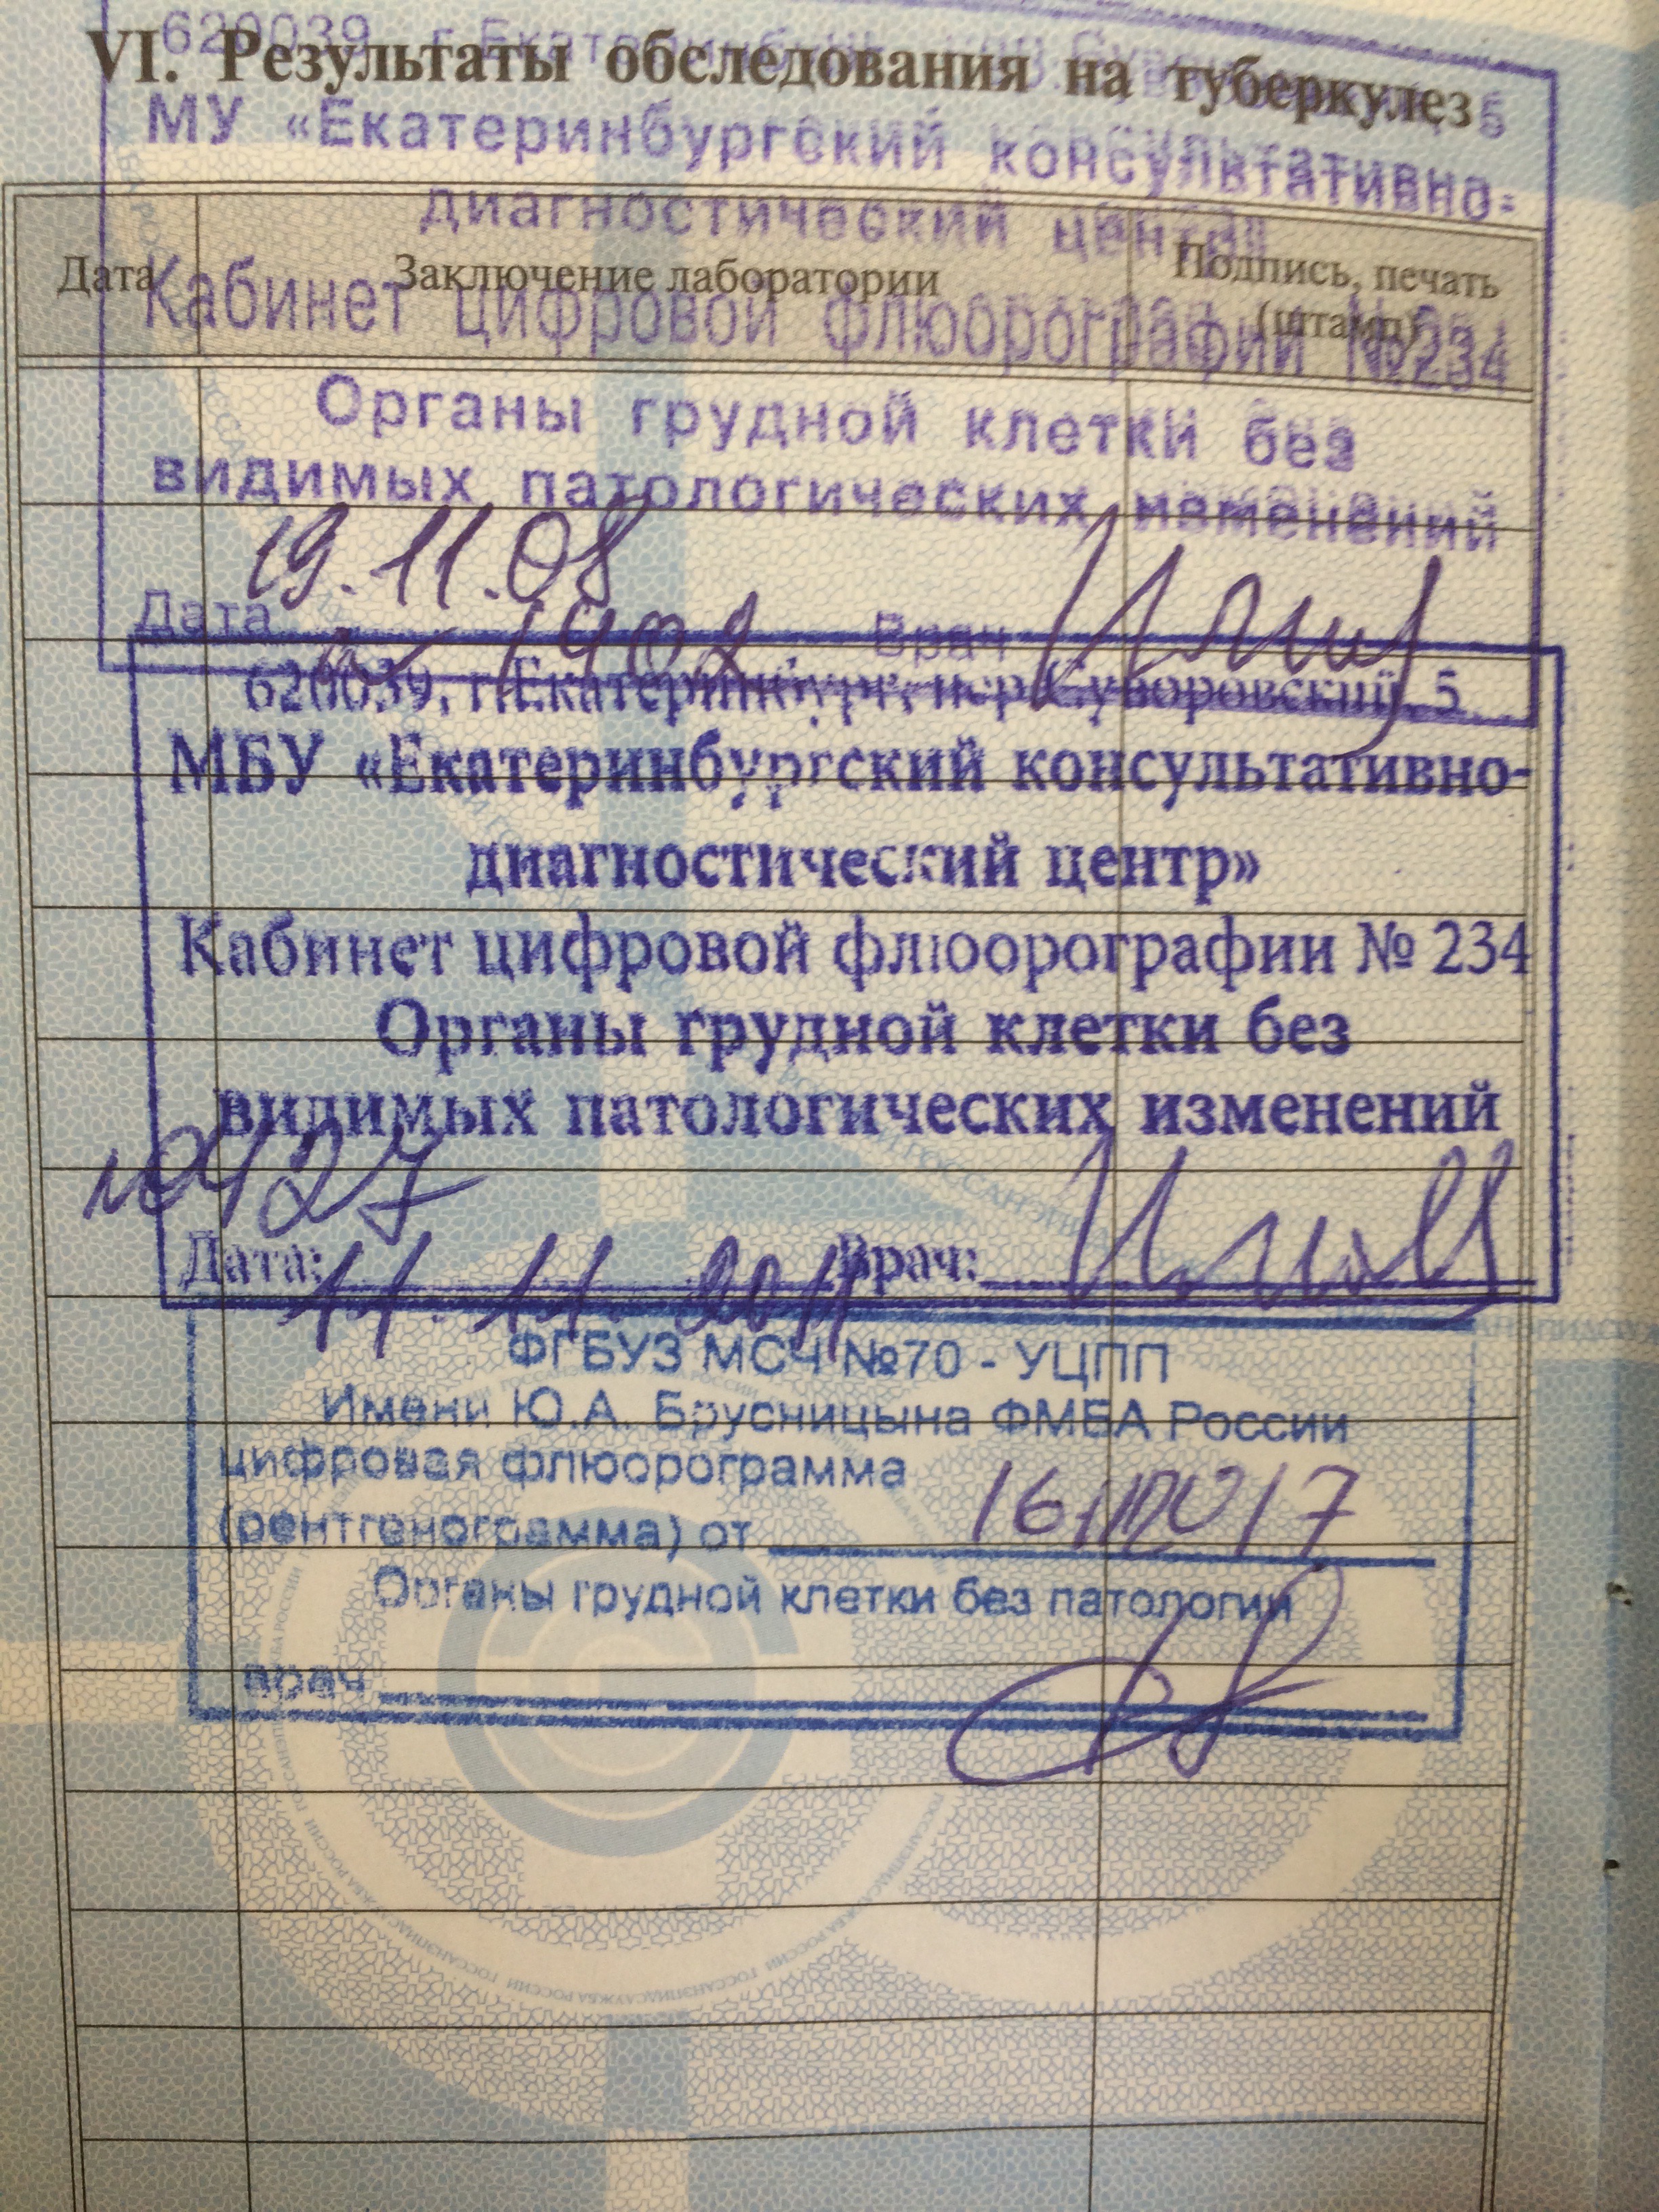 620039, г. Екатеринбург, пер. Суворовский, 5
VI. Результаты обследования на туберкулез
МУ «Екатеринбургский консультативно-
диагностический центр»
Дата
Заключение лаборатории
Подпись, печать
(штамп)
Кабинет цифровой флюорографии №234
Органы грудной клетки без
видимых патологических изменений
19.11.08
Дата
Врач
1402
620039, г. Екатеринбург, пер. Суворовский, 5
МБУ «Екатеринбургский консультативно-
диагностический центр»
Кабинет цифровой флюорографии № 234
Органы грудной клетки без
видимых патологических изменений
№ 427
Дата: 11.11.2011 Врач:
ФГБУЗ МСЧ №70 - УЦПП
Имени Ю.А. Брусницына ФМБА России
цифровая флюорограмма
(рентгенограмма) от
Органы грудной клетки без патологии
врач